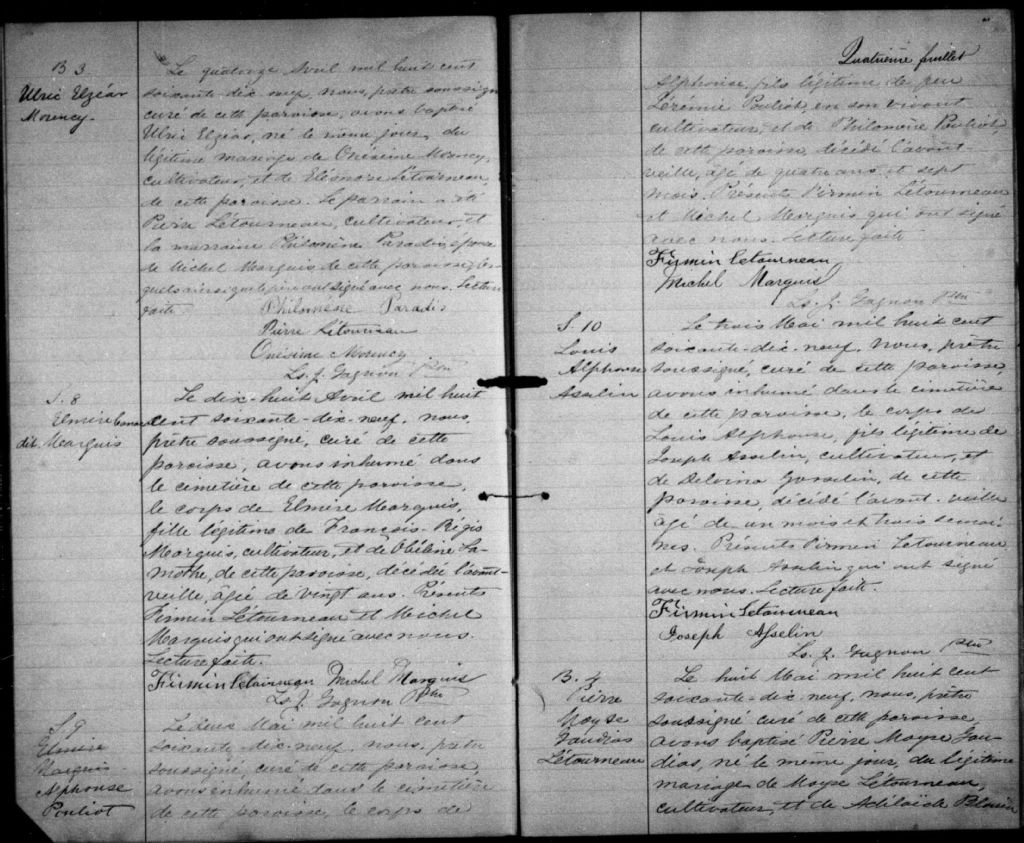 B 3
Ulric Elzéar
Morency
Le quatorze Avril mil huit cent
soixante-dix-neuf, nous, prêtre soussigné
curé de cette paroisse, avons baptisé
Ulric Elzéar, né le même jour, du
légitime mariage de Onésime Morency,
cultivateur, et de Eléonore Létourneau,
de cette paroisse. Le parrain a été
Pierre Létourneau, cultivateur, et
la marraine Philomène Paradis, épouse
de Michel Marquis de cette paroisse, les-
quels ainsi que le père ont signé avec nous. Lecture
faite
Philomène Paradis
Pierre Létourneau
Onésime Morency
Ls. J. Gagnon Ptre
S. 8
Elmire
dit Marquis
Le dix-huit Avril mil huit
cent soixante-dix-neuf, nous,
prêtre soussigné, curé de cette
paroisse, avons inhumé dans
le cimetière de cette paroisse,
le corps de Elmire Marquis,
fille légitime de François-Régis
Marquis, cultivateur, et de Obéline La-
mothe, de cette paroisse, décédée l'avant-
veille, âgée de vingt ans. Présents
Firmin Létourneau et Michel
Marquis qui ont signé avec nous.
Lecture faite.
Firmin Letourneau Michel Marquis
Ls J. Gagnon Ptre
S. 9
Elmire
Marquis
Alphonse
Pouliot
Le deux Mai mil huit cent
soixante-dix-neuf, nous, prêtre
soussigné, curé de cette paroisse,
avons inhumé dans le cimetière
de cette paroisse, le corps de
Quatrième feuillet
Alphonse, fils légitime de feu
Jérémie Pouliot, en son vivant
cultivateur, et de Philomène Pouliot
de cette paroisse, décédé l'avant-
veille, âgé de quatre ans et sept
mois. Présents Firmin Létourneau
et Michel Marquis qui ont signé
avec nous. Lecture faite
Firmin Letourneau
Michel Marquis
Ls. J. Gagnon Ptre
S. 10
Louis
Alphonse
Asselin
Le trois Mai mil huit cent
soixante-dix-neuf, nous, prêtre
soussigné, curé de cette paroisse,
avons inhumé dans le cimetière
de cette paroisse, le corps de
Louis Alphonse, fils légitime de
Joseph Asselin, cultivateur, et
de Delvina Gosselin, de cette
paroisse, décédé l'avant-veille
âgé de un mois et trois semai-
nes. Présents Firmin Letourneau
et Joseph Asselin qui ont signé
avec nous. Lecture faite.
Firmin Letourneau
Joseph Asselin
Ls. J. Gagnon Ptre
B. 4
Pierre
Moyse
Gaudias
Létourneau
Le huit Mai mil huit cent
soixante-dix-neuf, nous, prêtre
soussigné curé de cette paroisse,
avons baptisé Pierre Moyse Gau-
dias, né le même jour, du légitime
mariage de Moyse Létourneau,
cultivateur, et de Adélaïde Blouin